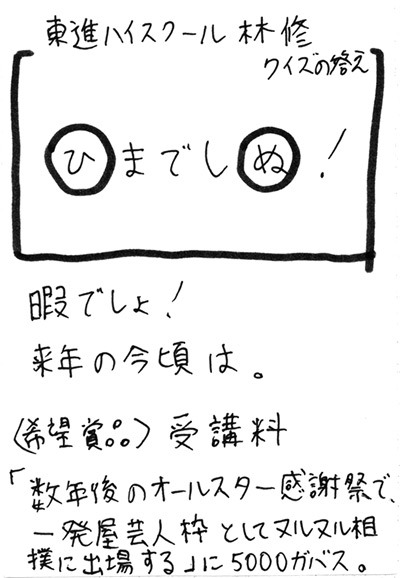 東進ハイスクール 林修
クイズの答え
ひまでしぬ!
暇でしょ!
来年の今頃は。
〈希望賞品〉受講料
「数年後のオールスター感謝祭で、
一発屋芸人枠としてヌルヌル相
撲に出場する」に5000ガバス。